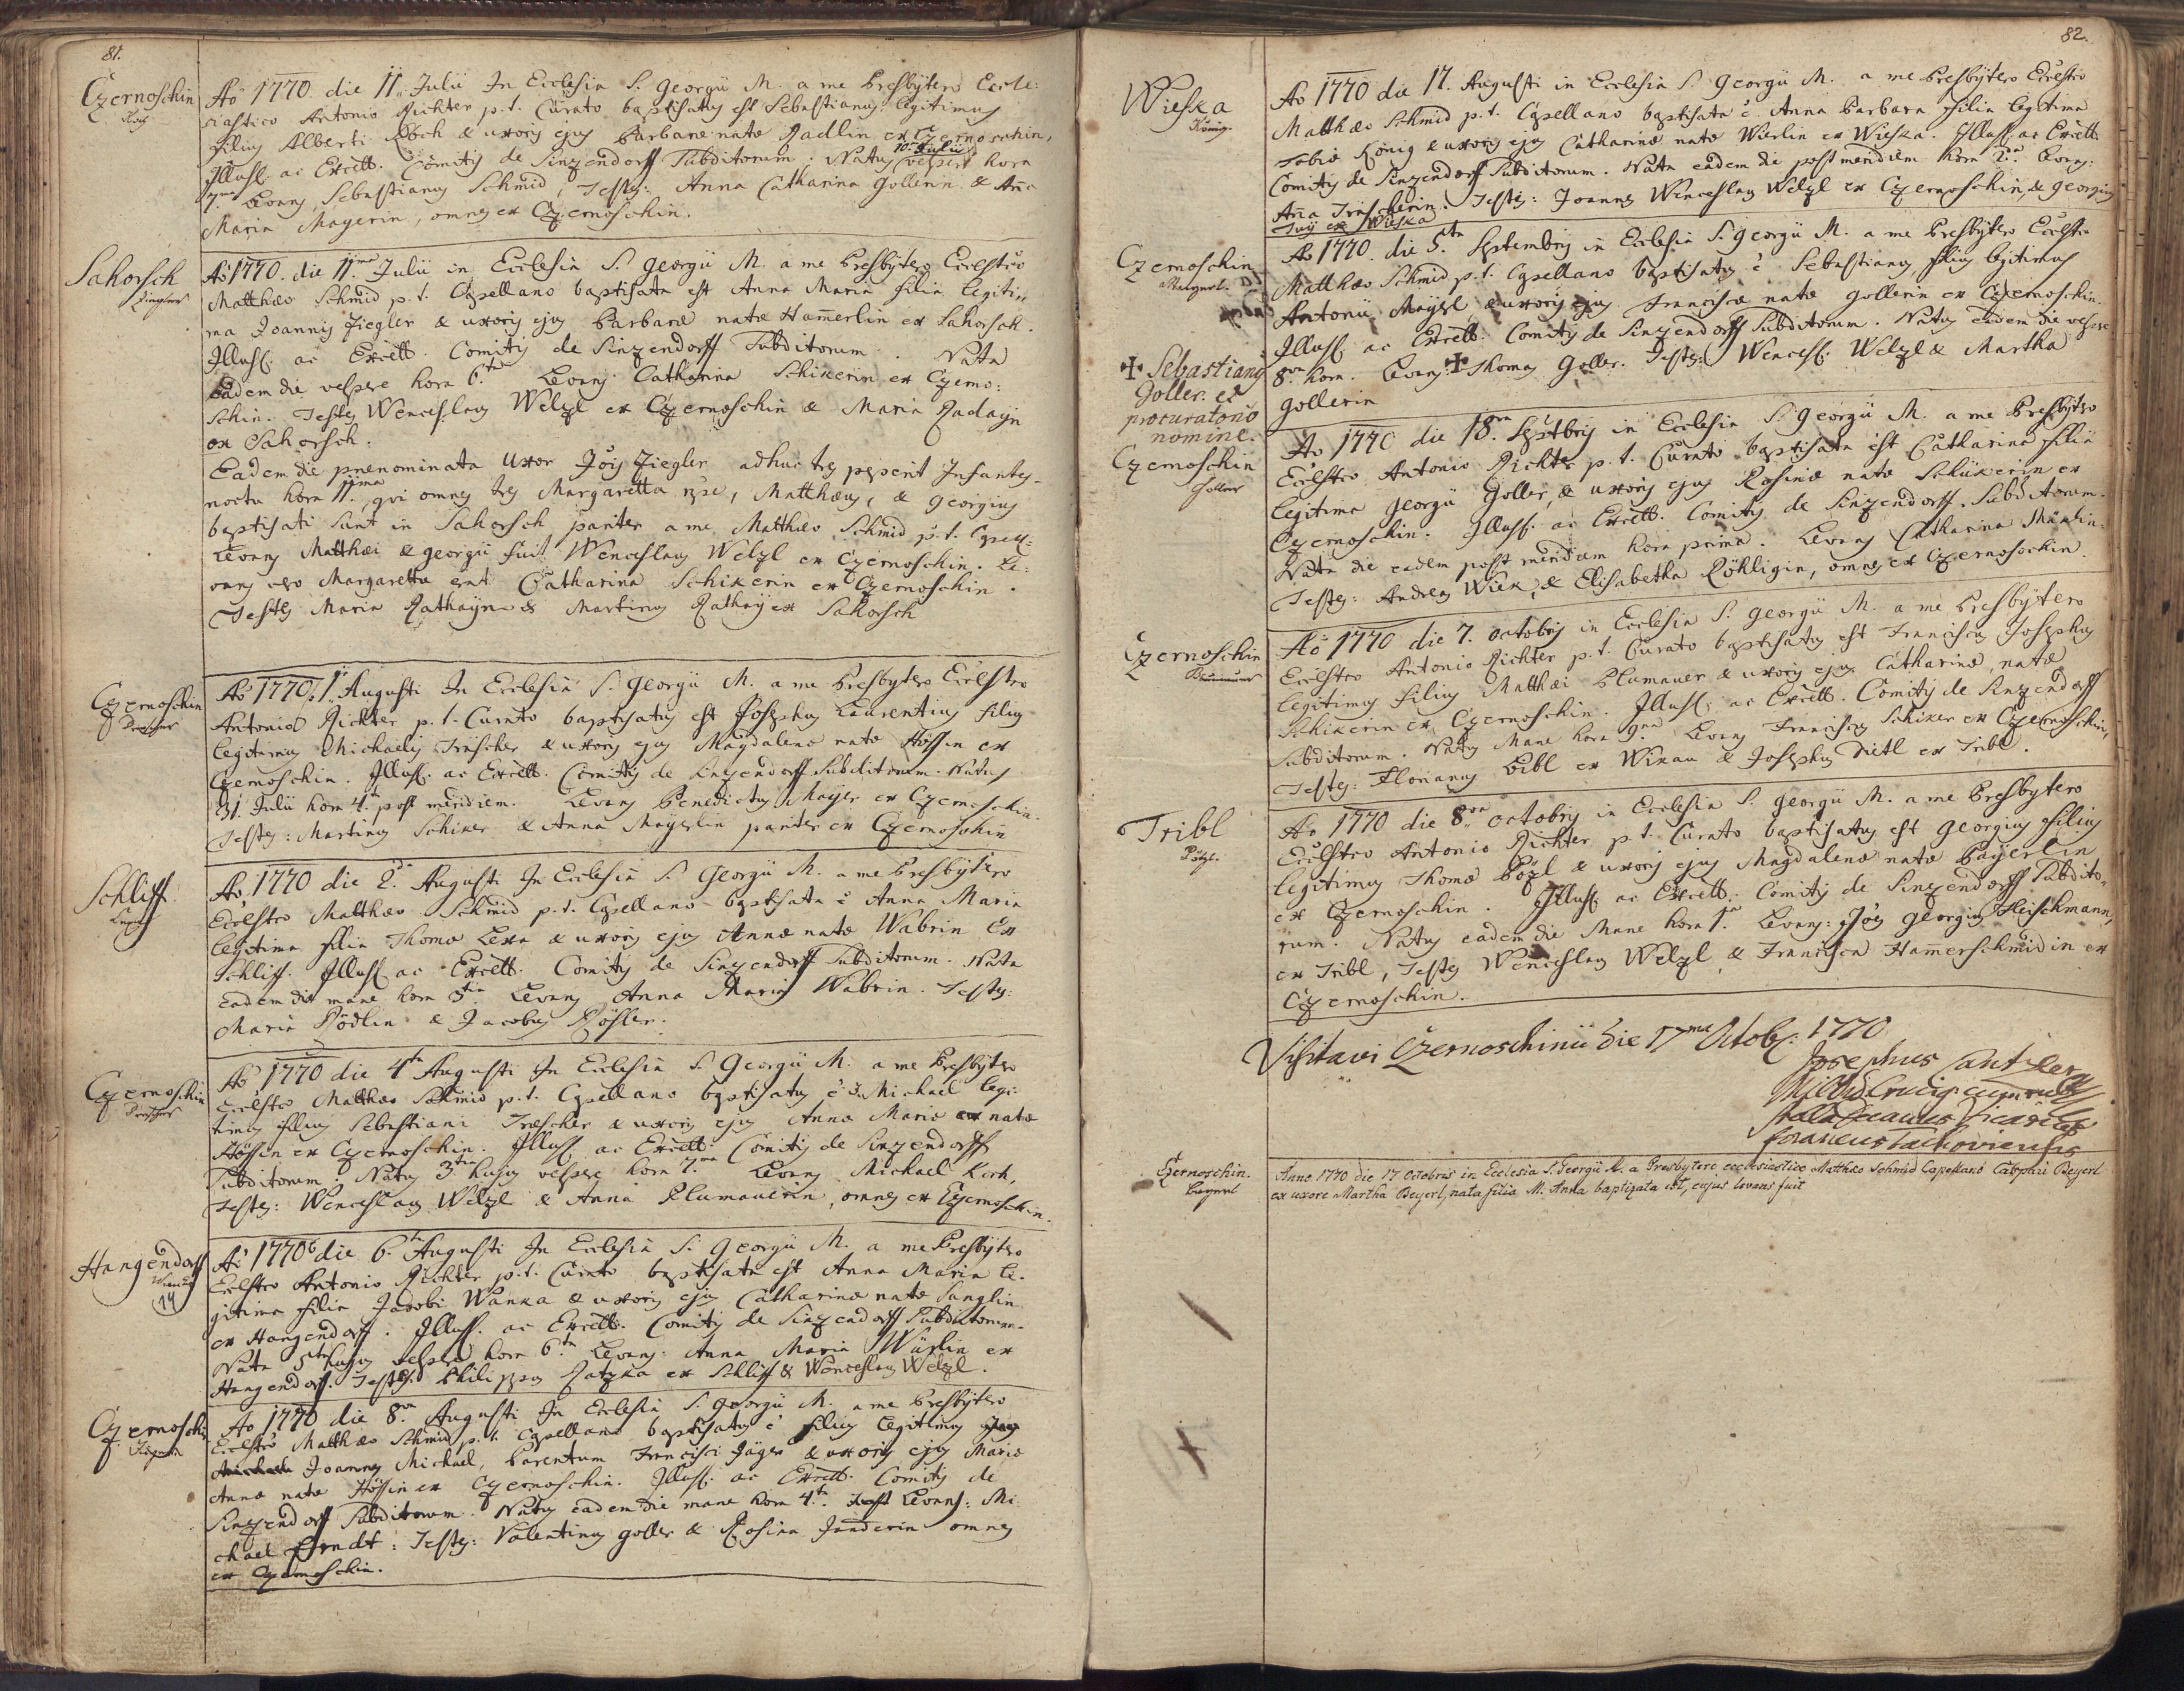 81.
Czernoschin
Aõ 1770. die 11. Julii In Ecclesia S. Georgii M. a me Presbÿtero Eccle:
siastico Antonio Richter p.t. Curato baptisatus est Sebastianus legitimus
filius Alberti & uxoris ejus Barbaræ natæ Radlin ex Czernoschin,
Illust. ac Excell. Comitis de Sinzendorff Subditorum. Natus 10 Julii vespere hora
7ma Levans Sebastianus Schmid, Testes: Anna Catharina Gollerin & Ana
Maria Mayerin, omnes ex Czernoschin.
Sahorsch
Ziegler
Aõ 1770. die 11ma Julii in Ecclesia S. Georgii M. a me Presbÿtero Ecclstco
Matthæo Schmid p.t. Capellano baptisata est Anna Maria filia legiti„
ma Joannis Ziegler & uxoris ejus Barbaræ natæ Hamerlin ex Sahorsch.
Illust. ac Excell. Comitis de Sinzendorff Subditorum. Nata
Eadem die vespere hora 6ta Levans Catharina Schikerin ex Czerno:
schin. Testes Wenceslaus Welzl ex Czernoschin & Maria Radayn
ex Sahorsch.
Eadem die prænominata Uxor Jõis Ziegler adhuc tres peperit Infantes
noctu hora 11ma qui omnes tres Margaretta, Matthæus, & Georgius
baptisati sunt in Sahorsch pariter a me Matthæo Schmid p.t. Capell:
Levans Matthæi & Georgii fuit Wenceslaus Welzl ex Czernoschin. Le:
vans vero Margarettæ erat Catharina Schikerin ex Czernoschin.
Testes Maria Rathayn & Martinus Rathay ex Sahorsch
Czernoschin
Drescher
Aõ 1770. 1. Augusti In Ecclesia S. Georgii M. a me Presbytero Ecclstco
Antonio Richter p.t. Curato baptisatus est Josephus Laurentius filius
legitimus Michaelis Trescher & uxoris ejus Magdalenæ natæ Hössin ex
Czernoschin. Illust. ac Excell. Comitis de Sinzendorff Subditorum. Natus
31. Julii hora 4ta post meridiem. Levans Benedictus Mayer ex Czernoschin.
Testes: Martinus Schiker & Anna Mayerlin pariter ex Czernoschin
Schliff
Aõ 1770 die 2da Augusti In Ecclesia S. Georgii M. a me Presbÿtero
Ecclstco Matthæo Schmid p.t. Capellano baptisata è Anna Maria
legitima filia Thomæ Lexa & uxoris ejus Annæ natæ Wabrin Ex
Schliff. Illust. ac Excell. Comitis de Sinzendorff Subditorum. Nata
eadem die mane hora 5ta Levans Anna Maria Wabrin. Testes:
Maria Rödlin & Jacobus Rösler.
Czernoschin
Drescher
Aõ 1770 die 4ta Augusti In Ecclesia S. Georgii M. a me Presbÿtero
Ecclstco Matthæo Schmid p.t. Capellano baptisatus è Michael legi:
timus filius Sebastiani Trescher & uxoris ejus Annæ Mariæ natæ
Hössin ex Czernoschin. Illust. ac Excell. Comitis de Sinzendorff
Subditorum. Natus 3tia hujus vespere hora 7ma Levans Michael Kirh,
Testes: Wenceslaus Welzl & Anna Plumauerin, omnes ex Czernoschin.
Hangendorff
14
Aõ 1770 die 6ta Augusti In Ecclesia S. Georgii M. a me Presbÿtero
Ecclstco Antonio Richter p.t. Curato baptisata est Anna Maria le.
gitima filia Jacobi Wanka & uxoris ejus Catharinæ natæ Sunglin
ex Hangendorff. Illust. ac Excell. Comitis de Sinzendorff Subditorum.
Nata 5ta hujus vespere hora 6ta Levans: Anna Maria Würlin ex
Hangendorff. Testes Philippus Ratzka ex Schliff & Wenceslaus Welzl.
Czernoschin
Aõ 1770 die 8va Augusti In Ecclesia S. Georgii M. a me Presbÿtero
Ecclstco Matthæo Schmid p.t. Capellano baptisatus è filius legitimus
Joannes Michael, Parentum Francisci Jäger & uxoris ejus Mariæ
Annæ natæ Hössin ex Czernoschin. Illust. ac Excell. Comitis de
Sinzendorff Subditorum. Natus eadem die mane hora 4ta. Levans: Mi
chael Arndt: Testes: Valentinus Goller & Rosina Janderin omnes
ex Czernoschin.
82.
Wieska
König.
Ao 1770 die 17. Augusti in Ecclesia S. Georgii M. a me Presbÿtero Ecclstco
Matthæo Schmid p.t. Capellano baptisata è Anna Barbara filia legitima
Tobiæ König & uxoris ejus Catharinæ natæ Würlin ex Wieska. Illust. ac Excell.
Comitis de Sinzendorff Subditorum. Nata eadem die post meridiem hora 2da Levans:
Ana Trescherin. Testes: Joannes Wenceslaus Welzl ex Czernoschin, & Georgius
ex Wieska
Czernoschin
Ao 1770. die 5ta Septembris in Ecclesia S. Georgii M. a me Presbÿtero Ecclstco
Matthæo Schmid p.t. Capellano baptisatus è Sebastianus, filius legitimus
Antonii Mayerl & uxoris ejus Franciscæ natæ Gollerin ex Czernoschin.
Illust. ac Excell. Comitis de Sinzendorff Subditorum. Natus eadem die vespere
8va hora. Levans ✠ Thomas Goller. Testes: Wencesl. Welzl & Martha
Gollerin
✠ Sebastianus
Goller. et
procuratorio
nomine.
Czernoschin
Goller
Ao 1770 die 18va Septbris in Ecclesia S. Georgii M. a me Presbÿtero
Ecclstco Antonio Richter p.t. Curato baptisata est Catharina filia
legitima Georgii Goller, & uxoris ejus Rosinæ natæ Schikerin ex
Czernoschin. Illust. ac Excell. Comitis de Sinzendorff Subditorum.
Nata die eadem post meridiem hora prima. Levans Catharina
Testes: Andreas Wiek, & Elisabetha Röhligin, omnes ex Czernoschin.
Czernoschin
Aõ 1770 die 7. octobris in Ecclesia S. Georgii M. a me Presbÿtero
Ecclstco Antonio Richter p.t. Curato baptisatus est Franciscus Josephus
legitimus filius Matthæi Plumauer & uxoris ejus Catharinæ, natæ
Schikerin ex Czernoschin. Illust. ac Excell. Comitis de Sinzendorff
Subditorum. Natus Mane hora 9na Levans Franciscus Schiker ex Czernoschin,
Testes: Florianus Bibl ex Winau & Josephus Dietl ex Tribl.
Tribl
Pözl.
Ao 1770 die 8va octobris in Ecclesia S. Georgii M. a me Presbytero
Ecclstco Antonio Richter p.t. Curato baptisatus est Georgius filius
legitimus Thomæ Pözl & uxoris ejus Magdalenæ natæ Bayerlin
ex Czernoschin. Illust. ac Excell. Comitis de Sinzendorff Subdito„
rum. Natus eadem die Mane hora 1ma. Levans: Jões Georgius Fleischmann,
ex Tribl, Testes Wenceslaus Welzl & Francisca Hamerschmidin ex
Czernoschin.
Visitavi Czernoschinii die 17ma Octob: 1770
Josephus
Vicarius
foraneus
Czernoschin.
Beyerl
Anno 1770 die 17 Octobris in Ecclesia S. Georgii M. a Presbytero ecclesiastico Matthæo Schmid Capellano Cristophii Beyerl
ex uxore Martha Beyerl, nata filia M. Anna baptizata est, cujus levans fuit